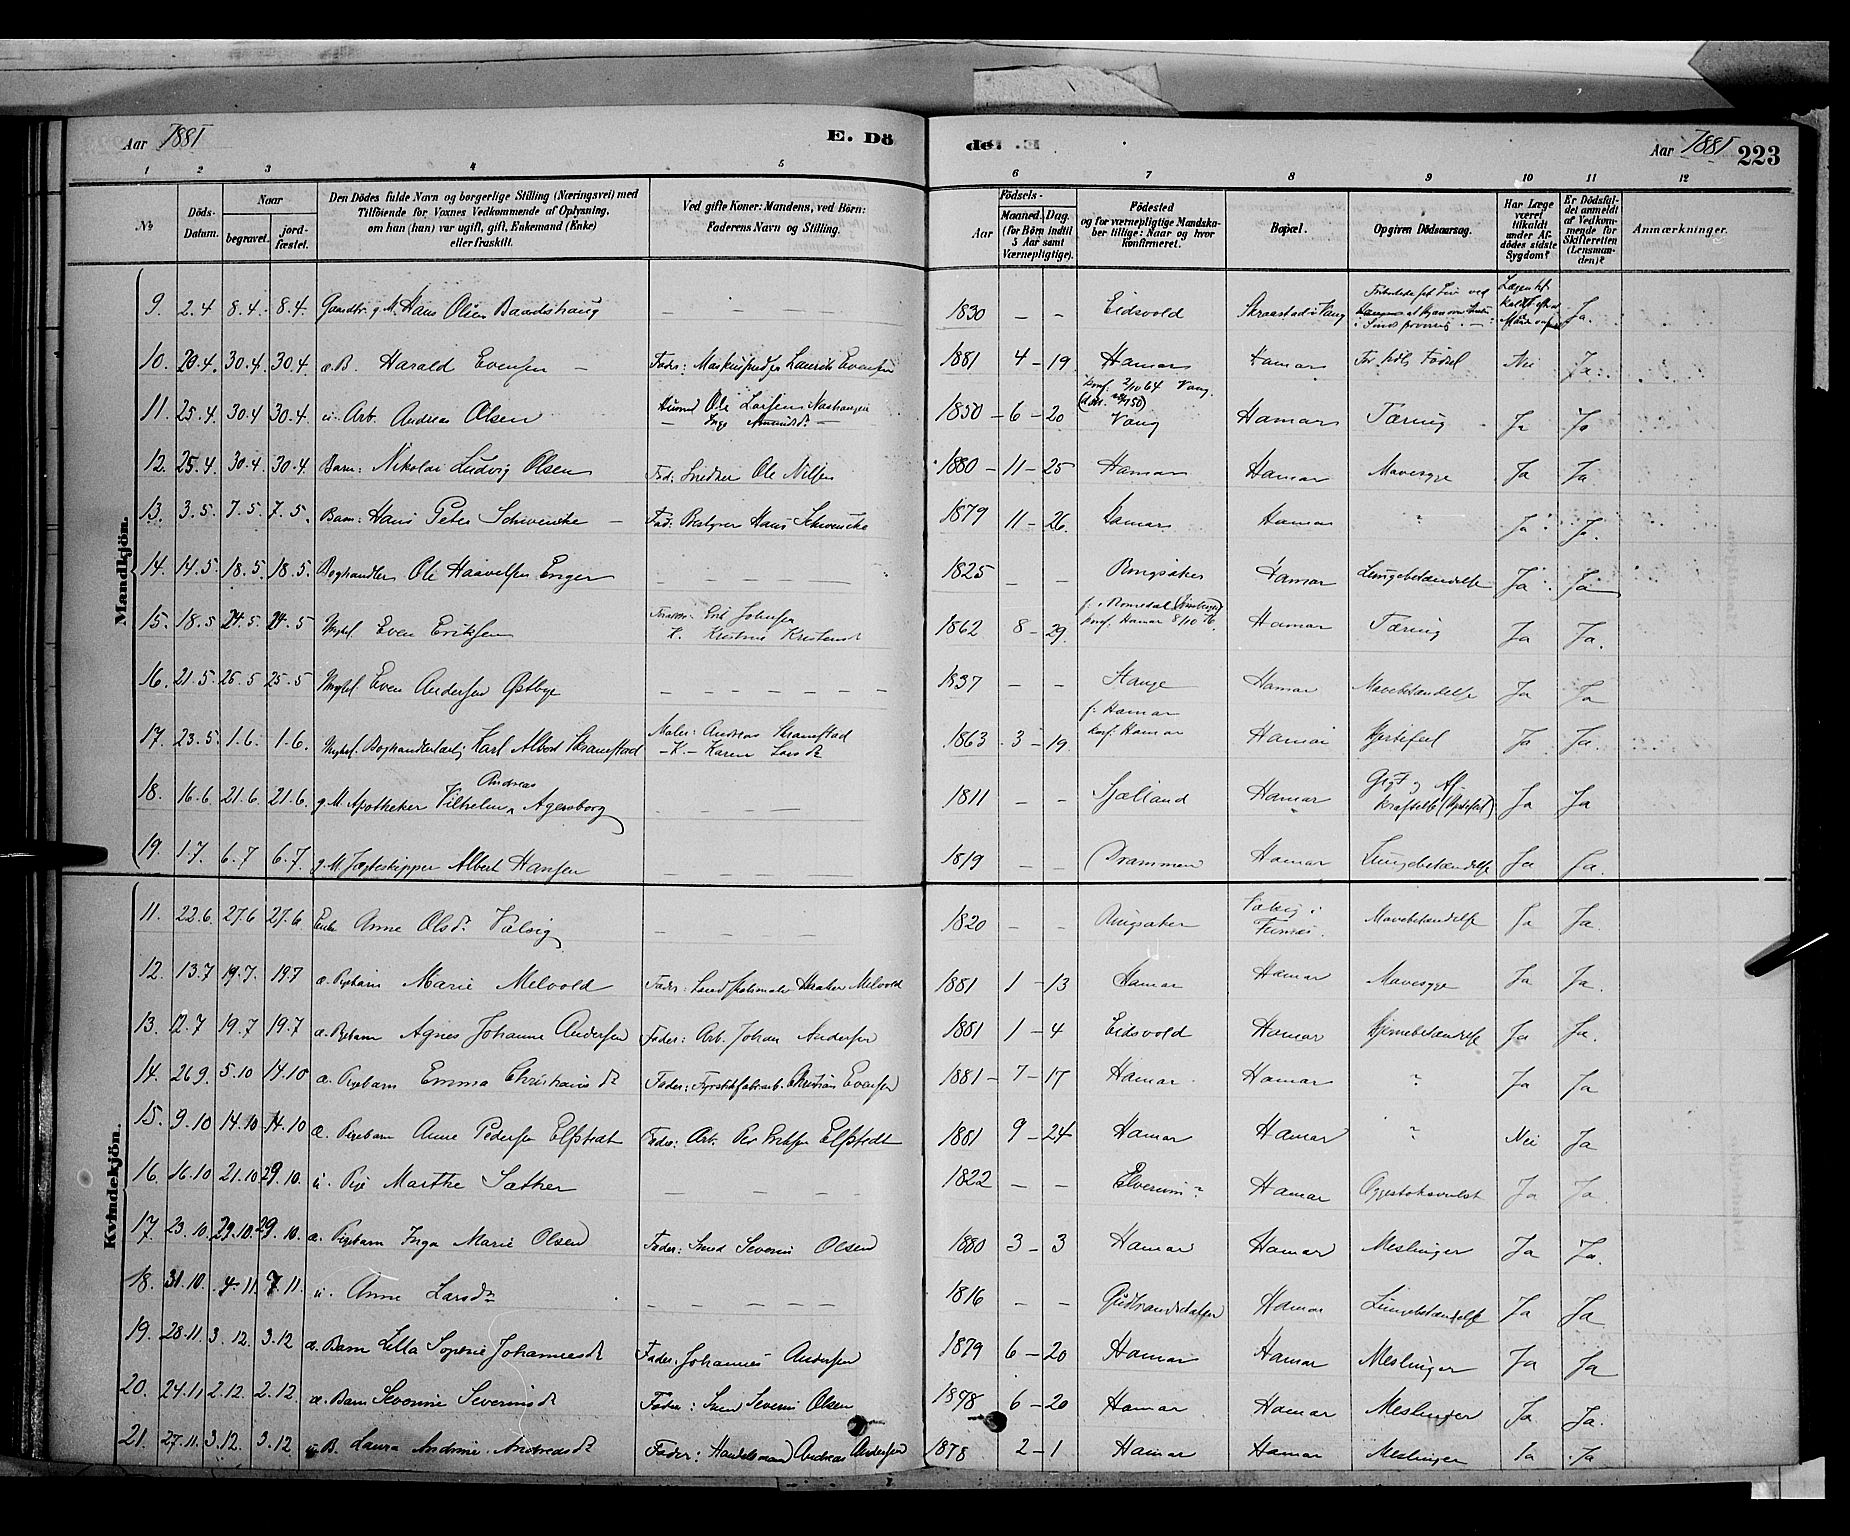 Aar 1881
E. Dö
de.
Aar 1881
223
1 2 3 4 5 6 7 8 9 10 11 12
No
Döds-Datum.
Naar
begravet.
jord-fæstet.
Den Dödes fulde Navn og borgerlige Stilling (Næringsvei) med
Tilföiende for Voxnes Vedkommende af Oplysning,
om han (han) var ugift, gift, Enkemand (Enke)
eller fraskilt.
Ved gifte Koner: Mandens, ved Börn:
Faderens Navn og Stilling.
Födsels-
Aar
Maaned. Dag.
(for Börn indtil
5 Aar samt
Værnepligtige).
Födested
og for værnepligtige Mandska-
ber tillige: Naar og hvor
Konfirmeret.
Bopæl.
Opgiven Dödsaarsag.
Har Læge
været
tilkaldt
under Af-
dödes sidste
Sygdom?
Er Dödsfal-
det anmeldt
af Vedkom-
mende for
Skifteretten
(Lensman-
den)?
Anmærkninger.
Mandkjön.
9. 2.4 8.4. 8.4. Gaardbr. g. M. Hans Olsen Baardshaug – – – – 1830 – – Eidsvold Skraastad i Vang Ja.
10. 20.4. 30.4. 30.4. æ. B. Harald Evensen – Fader: Laurits Evensen 1881 4 – 19 Hamar Hamar For tidlig Födsel Nei Ja.
11. 25.4. 30.4 30.4. u. Arb. Andreas Olsen Ole Larsen 1850 – 6 – 20 konf. 2/10 64 Vang. Vang Hamar Tæring Ja Ja
12. 25.4. 30.4. 30.4. Barn: Nikolai Ludvig Olsen Fad: Snedker Ole Nilsen 1880 – 11 – 25 Hamar Hamar Mavesyge Ja Ja
13. 3.5. 7.5 7.5. Barn: Hans Peter Schwencke – Fad: Hans Schwencke 1879 11 – 26. Hamar Hamar Ja Ja.
14. 14.5 18.5. 18.5. Boghandler Ole Haavelsen Enger – – – – 1825 – – Ringsaker Hamar Lungebetændelse Ja Ja
15. 18.5 24.5. 24.5 Ungkl. Even Eriksen Erik Johnsen K. Kristine Kristensd 1862 8 – 29. f. i Romedal konf. Hamar 8/10 76. Hamar Tæring Ja Ja.
16. 21.5. 25.5 25.5 Ungkl. Even Andersen Østbye – – – – – – 1837 – – Stange Hamar Mavebetændelse Ja Ja
17. 23.5. 1.6. 1.6. Ungkl. Karl Albert Skramstad Maler: Andreas Skramstad – K. – Karen Larsd. 1863 3 – 19 f. Hamar konf. Hamar Hamar Hjertefeil Ja Ja.
18. 16.6. 21.6. 21.6. g. M. Apotheker Vilhelm Andreas Agersborg – – – – 1811 – – Sjælland Hamar Gigt og Af-kræftelse Ja Ja
19. 1.7. 6.7 6.7. g. M. Jægteskipper Albert Hansen – – – – 1819 – – Drammen Hamar Lungebetændelse Ja Ja.
Kvindekjön.
11. 22.6. 27.6 27.6 Enke Anne Olsd. Valsig – – – – 1820 – – Ringsaker Valsig i Furnæs. Mavebetændelse Ja Ja.
12. 13.7 19.7. 19.7 æ. Pigebarn Marie Melvold Fader: Melvold 1881 1 – 13 Hamar Hamar Mavesyge Ja Ja.
13. 12.7 19.7 19.7 æ. Pigebarn Agnes Johanne Andersen Fader: Arb. Johan Andersen 1881 1 – 4 Eidsvold Hamar Hjernebetændelse Ja Ja.
14. 26.9. 5.10 14.10 æ. Pigebarn Emma Christiansd. Fader: Fyrstikfabarb. Christian Evensen 1881 – 7 – 17 Hamar. Hamar ? Ja Ja
15. 9.10 14.10 14.10 æ. Pigebarn Anne Pedersen Elfstedt Fader: Arb. Per Eriksen Elfstedt 1881 9 – 24 Hamar Hamar ? Nei Ja
16. 16.10 21.10 29.10. u. Pige Marthe Sæther – – – – 1822 – – Elverum? Hamar Æggestoksvulst Ja Ja.
17. 23.10. 29.10. 29.10. æ. Pigebarn Inga Marie Olsen Fader: Smed Severin Olsen 1880 3 – 3 Hamar Hamar Meslinger Ja Ja.
18. 31.10. 4.11. 7.11. u. Anne Larsd. – – – – – 1816 – – Gudbrandsdalen Hamar Lungebetændelse Ja Ja
19. 28.11. 3.12. 3.12 æ. Barn Sophie Johannesd. Fader: Johannes Andersen 1879 6 – 20 Hamar Hamar Meslinger Ja Ja
20. 24.11 2.12. 2.12. æ. Barn Severine Severinsd. Fader: Severin Olsen 1878 6 – 20 Hamar Hamar Meslinger Ja Ja.
21. 27.11. 3.12. 3.12 æ. B. Laura Andrine Andreasd. Fader: Handelsmand Andreas Andersen 1878 2 – 1 Hamar Hamar Meslinger Ja Ja